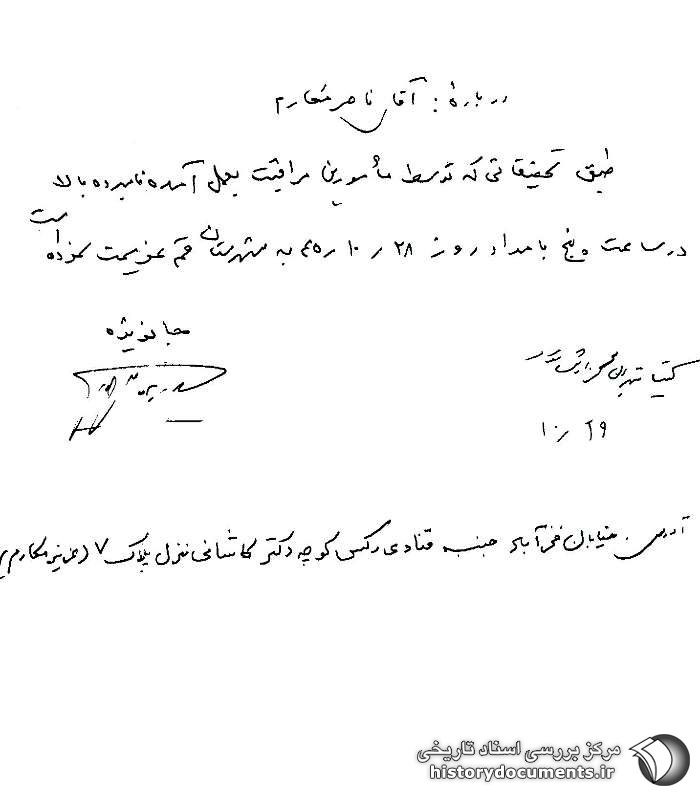 درباره: آقای ناصر مکارم
طبق تحقیقاتی که توسط مأمورین مراقبت بعمل آمده نامبرده بالا
در ساعت پنج بامداد روز ۲۸ ر ۱۰ ر ۴۵ به شهرستان قم عزیمت نموده است
جانویژه
کتبا تهران گزارش شد
۱۰ ر ۲۹
آدرس: خیابان فخرآباد جنب قنادی رکس کوچه دکتر کاشانی منزل پلاک ۷ (عزیز مکارم)
مرکز بررسی اسناد تاریخی
historydocuments.ir